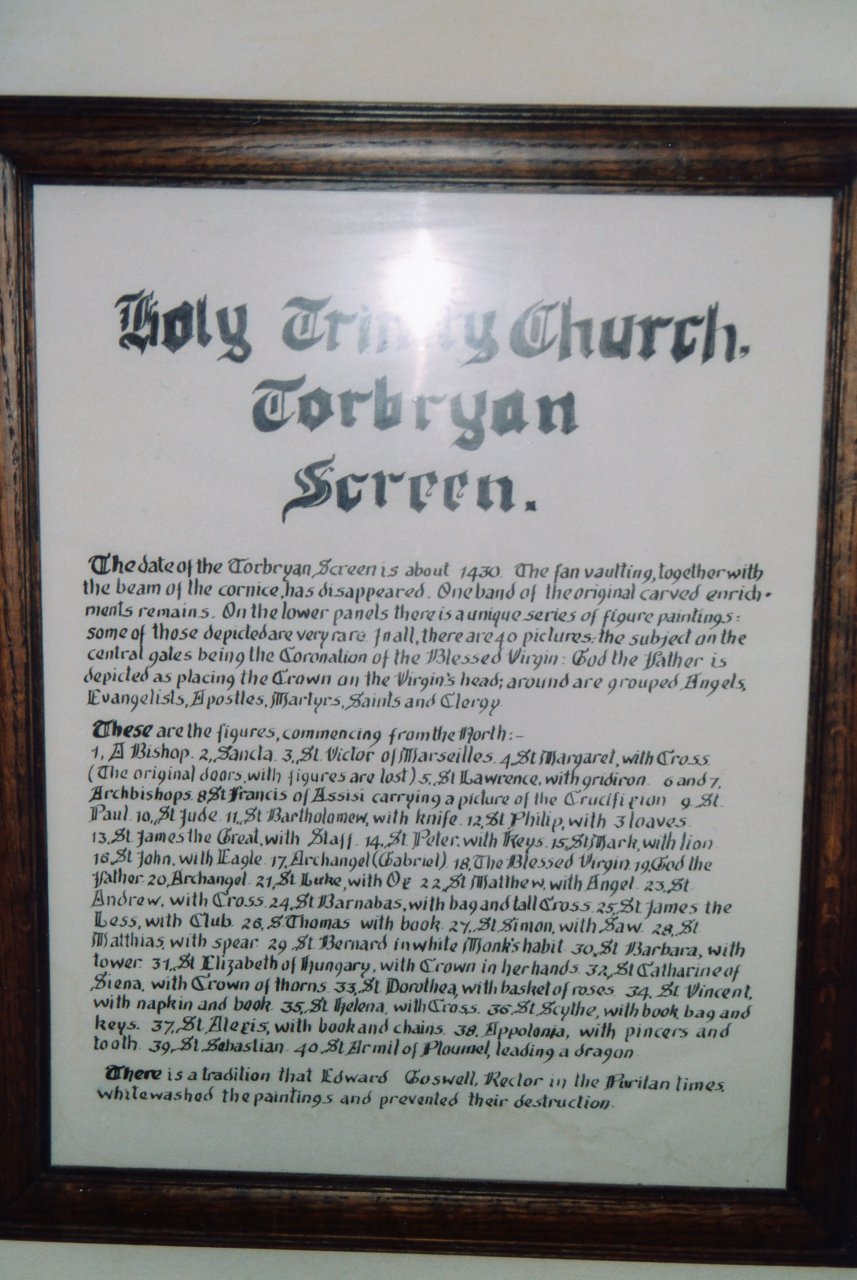 Holy Trinity Church.
Torbryan
Screen.
The date of the Torbryan Screen is about 1430. The fan vaulting, together with
the beam of the cornice, has disappeared. One band of the original carved enrich-
ments remains. On the lower panels there is a unique series of figure paintings:
some of those depicted are very rare. In all, there are 40 pictures: the subject on the
central gates being the Coronation of the Blessed Virgin: God the Father is
depicted as placing the Crown on the Virgin's head; around are grouped Angels,
Evangelists, Apostles, Martyrs, Saints and Clergy
These are the figures, commencing from the North:-
1, A Bishop. 2, Sancta. 3, St Victor of Marseilles. 4, St Margaret, with Cross
(The original doors, with figures are lost) 5, St Lawrence, with gridiron. 6 and 7,
Archbishops. 8 St Francis of Assisi carrying a picture of the Crucifixion 9. St
Paul. 10, St Jude. 11, St Bartholomew, with knife. 12, St Philip, with 3 loaves.
13, St James the Great, with Staff. 14, St Peter, with Keys. 15, St Mark, with lion
16, St John, with Eagle. 17, Archangel (Gabriel) 18, The Blessed Virgin. 19, God the
Father. 20, Archangel. 21, St Luke, with Ox 22, St Matthew, with Angel. 23, St
Andrew, with Cross. 24, St Barnabas, with bag and tall Cross. 25, St James the
Less, with Club. 26, S. Thomas with book. 27, St Simon, with Saw. 28, St
Matthias, with spear. 29 St Bernard in white Monk's habit. 30, St Barbara, with
tower. 31, St Elizabeth of Hungary, with Crown in her hands. 32, St Catharine of
Siena, with Crown of thorns. 33, St Dorothea, with basket of roses. 34, St Vincent,
with napkin and book. 35, St Helena, with Cross. 36, St Scythe, with book, bag and
keys. 37, St Alexis, with book and chains. 38, Appolonia, with pincers and
tooth. 39, St Sebastian. 40 St Armil of Ploumel, leading a dragon
There is a tradition that Edward Goswell, Rector in the Puritan times,
whitewashed the paintings and prevented their destruction.